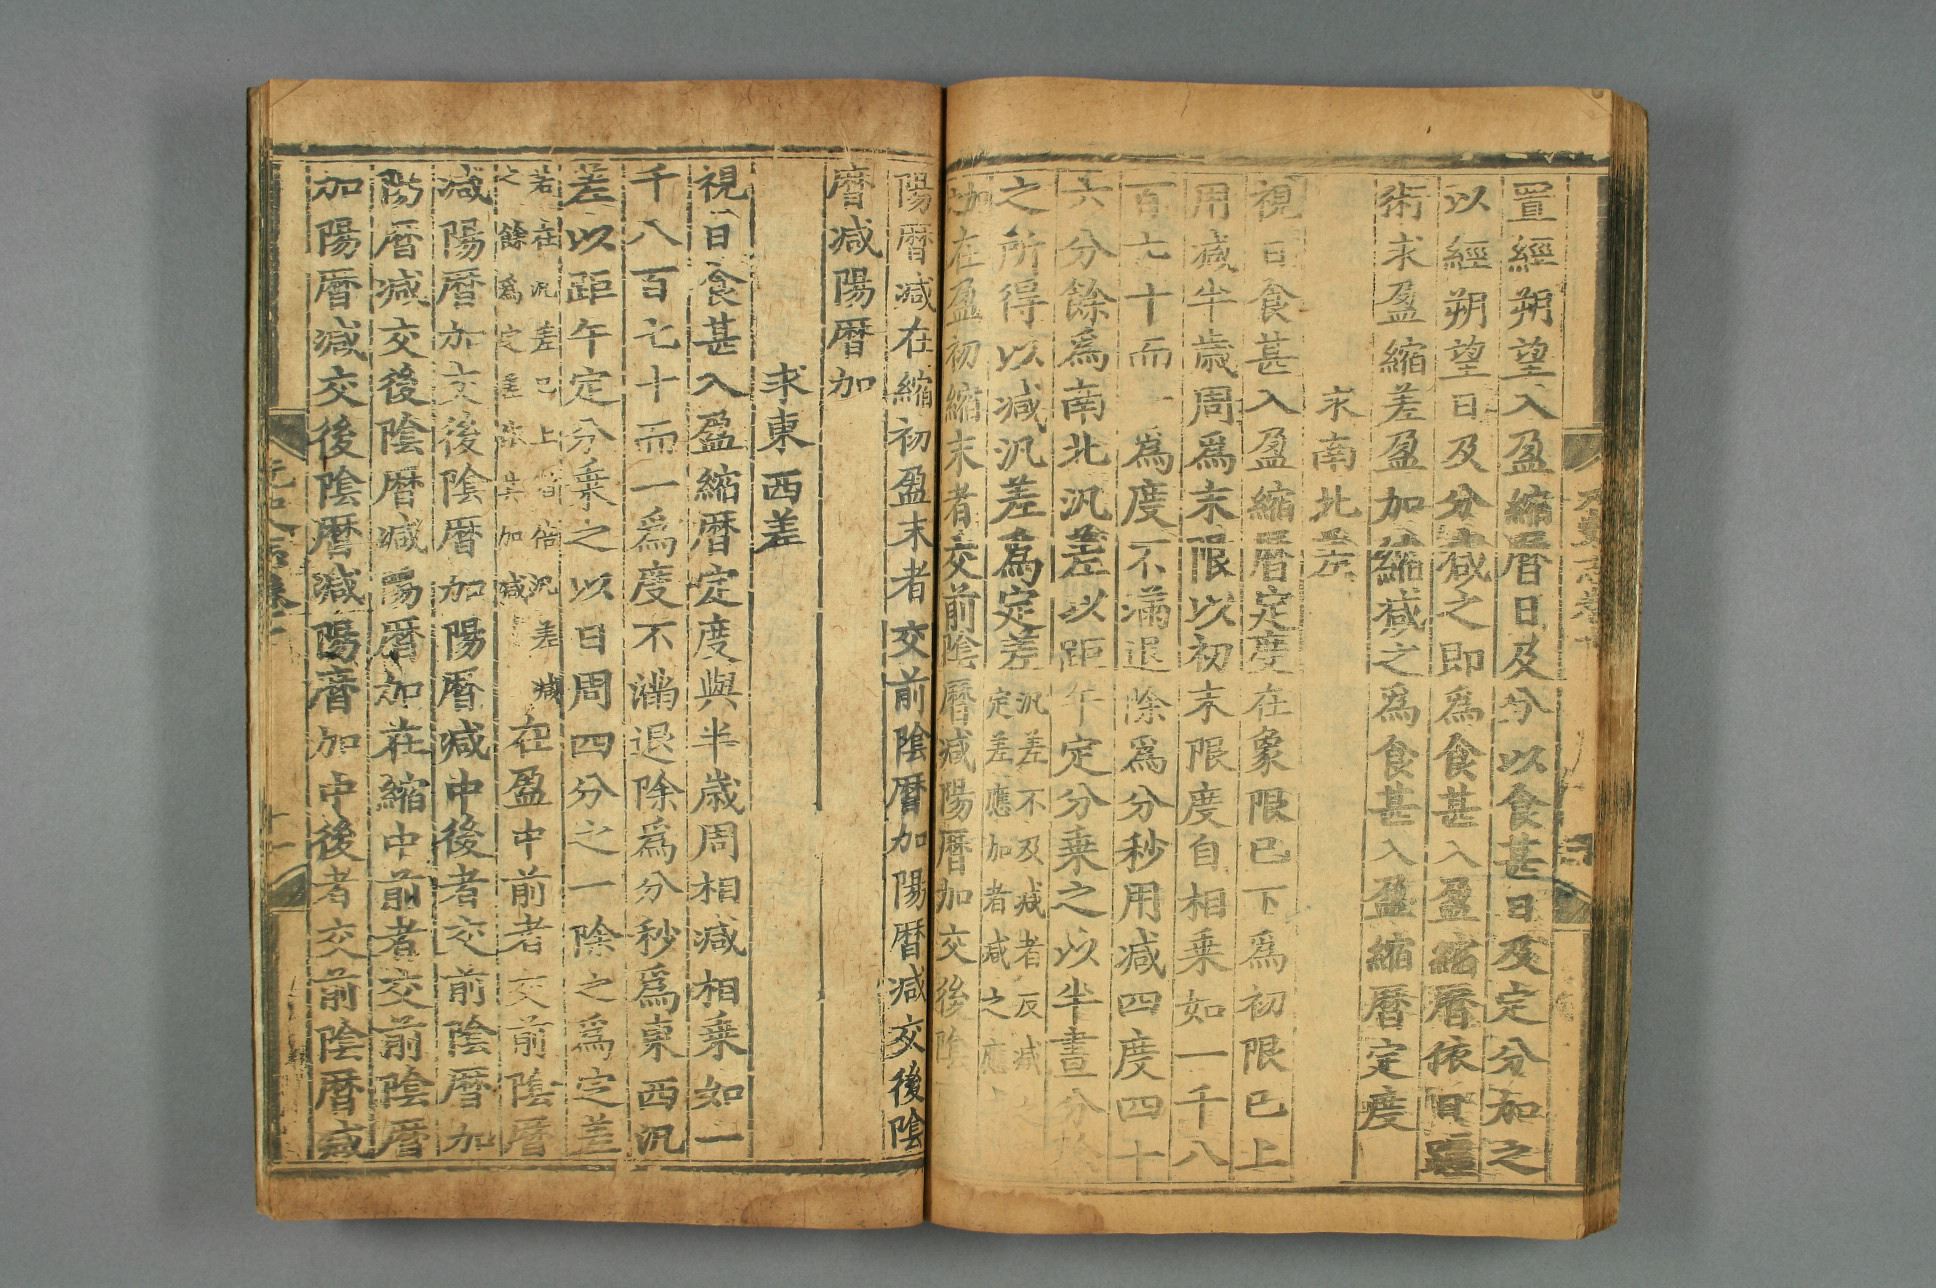 置經朔望入盈縮曆日及分以食甚日及定分加之
以經朔望日及分減之即爲食甚入盈縮曆依日躔
術求盈縮差盈加縮減之爲食甚入盈縮曆定度
求南北差
視日食甚入盈縮曆定度在象限已下爲初限已上
用減半歲周爲末限以初末限度自相乗如一千八
百七十而一爲度不滿退除爲分秒用減四度四十
六分餘爲南北汎差以距午定分乗之以半晝分
之所得以減汎差爲定差汎差不及減者反減之
定差應加者減之應
在盈初縮末者交前陰曆減陽曆加交後陰
陽曆減在縮初盈末者交前陰曆加陽曆減交後陰
曆減陽曆加
求東西差
視日食甚入盈縮曆定度與半歲周相減相乗如一
千八百七十而一爲度不滿退除爲分秒爲東西汎
差以距午定分乗之以日周四分之一除之爲定差
若在汎差已上倍汎差減
之餘爲定差依其加減
在盈中前者交前陰曆
減陽曆加交後陰曆加陽曆減中後者交前陰曆加
陽曆減交後陰曆減陽曆加在縮中前者交前陰曆
加陽曆減交後陰曆減陽曆加中後者交前陰曆減